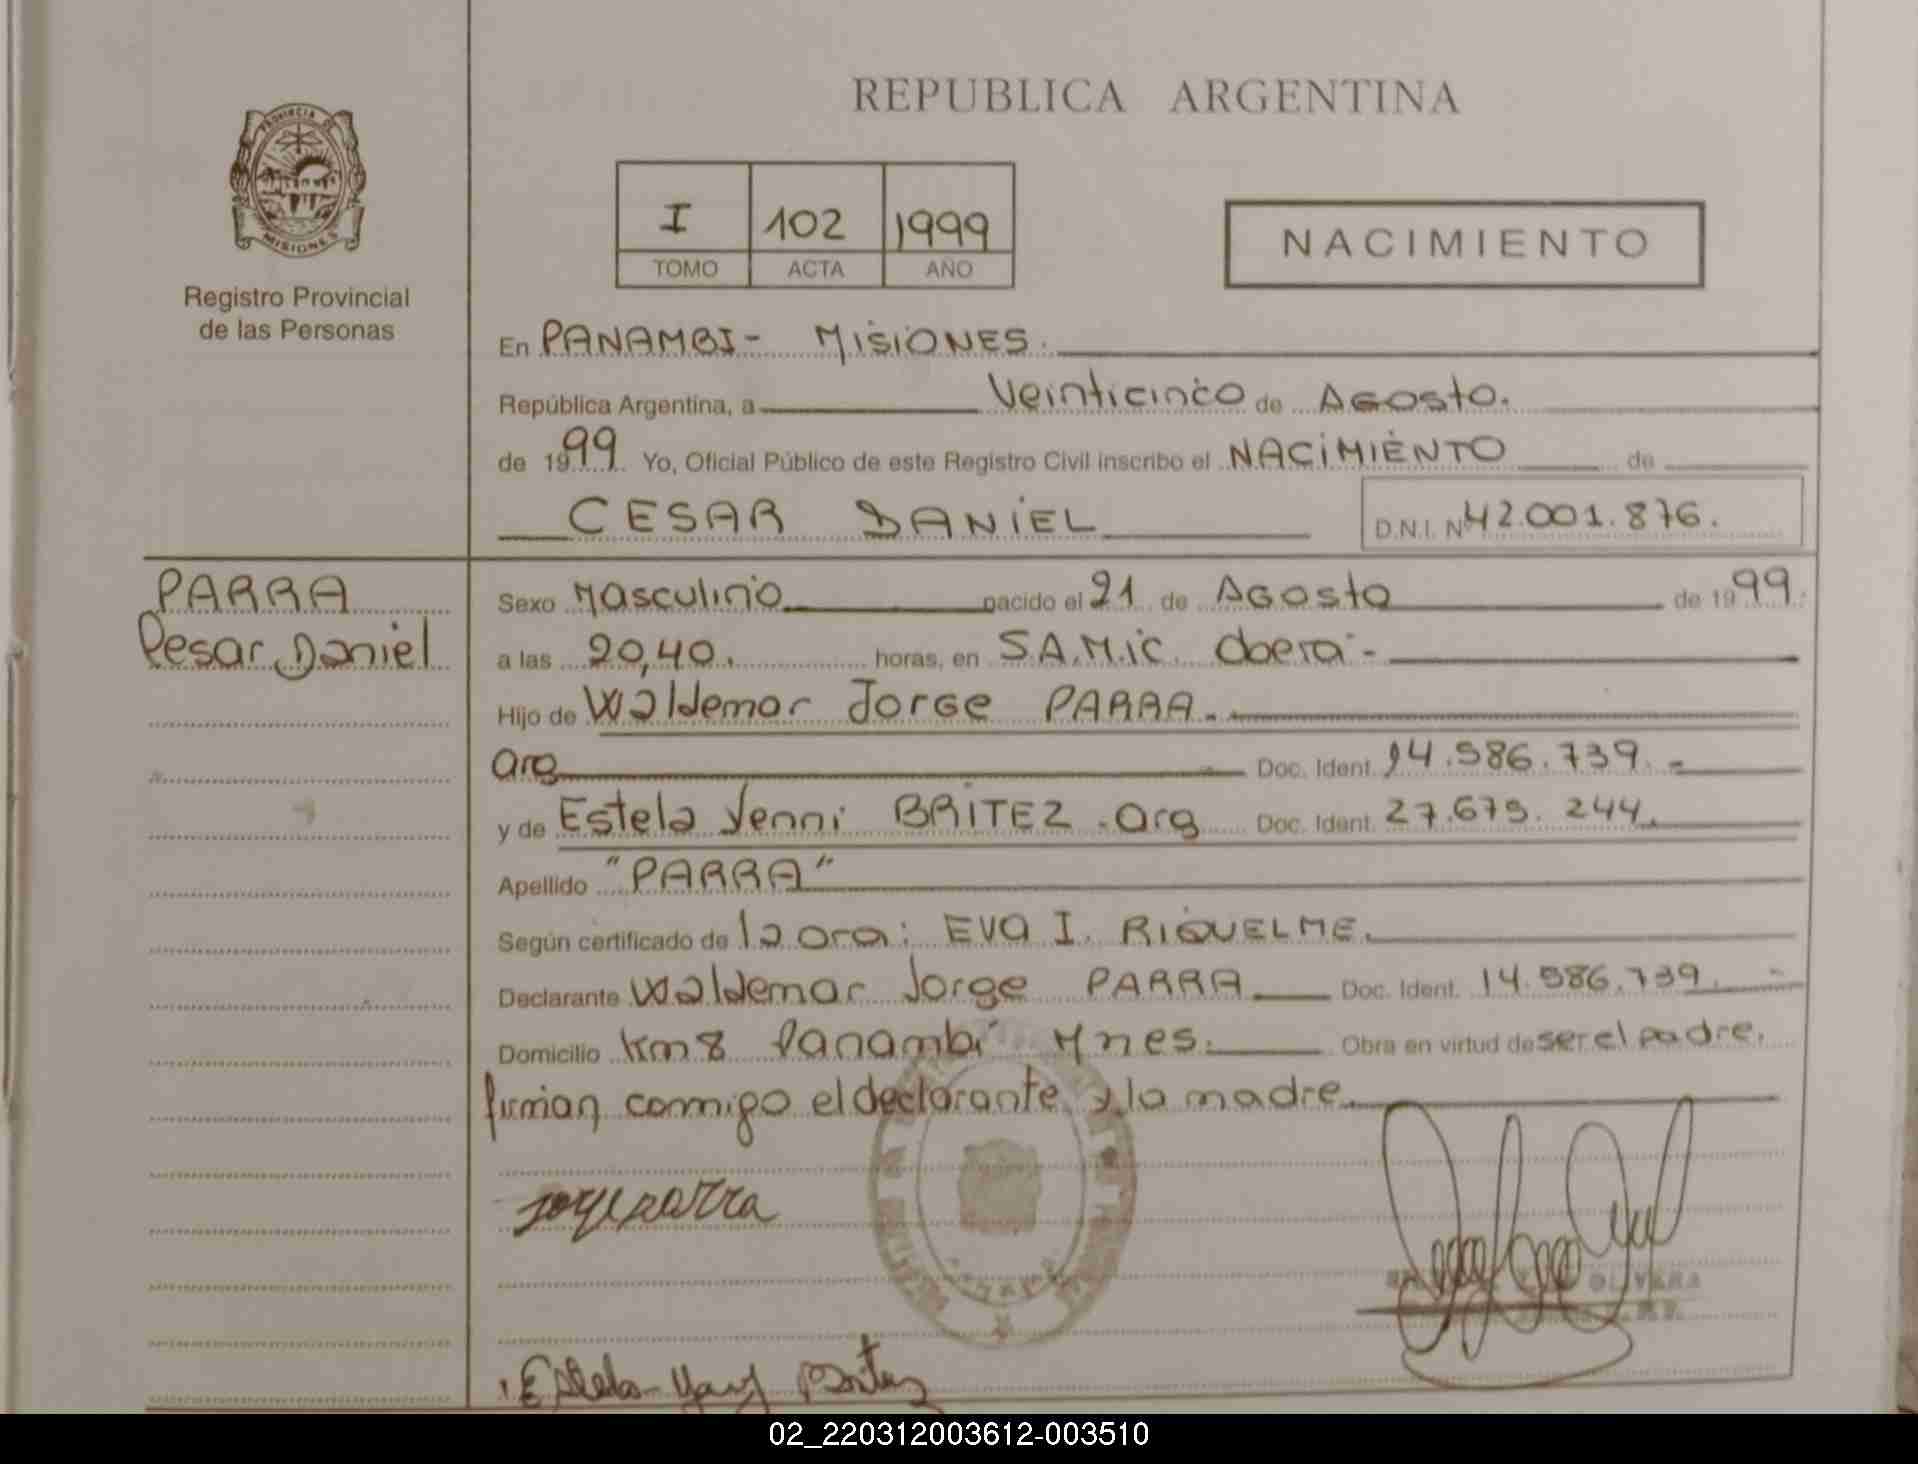 PROVINCIA DE
MISIONES
Registro Provincial
de las Personas
REPUBLICA ARGENTINA
I 102 1999
TOMO ACTA AÑO
NACIMIENTO
En PANAMBI- MISIONES.
República Argentina, a Veinticinco de Agosto.
de 1999 Yo, Oficial Público de este Registro Civil inscribo el NACIMIENTO de
CESAR DANIEL D.N.I. Nº 42.001.876.
PARRA
Cesar Daniel
Sexo Masculino nacido el 21 de Agosto de 1999.
a las 20,40. horas, en S.A.M.ic. Obera-
Hijo de Waldemar Jorge PARRA.
arg Doc. Ident. 14.586.739.-
y de Estela Yenni BRITEZ - arg Doc. Ident. 27.675.244.
Apellido "PARRA"
Según certificado de la Dra: EVA I. RIQUELME.
Declarante Waldemar Jorge PARRA Doc. Ident. 14.586.739.
Domicilio Km 8 Panambi Mnes. Obra en virtud de ser el padre.
firman conmigo el declarante y la madre.
Jorge parra
OLIVERA
Estela
02_220312003612-003510